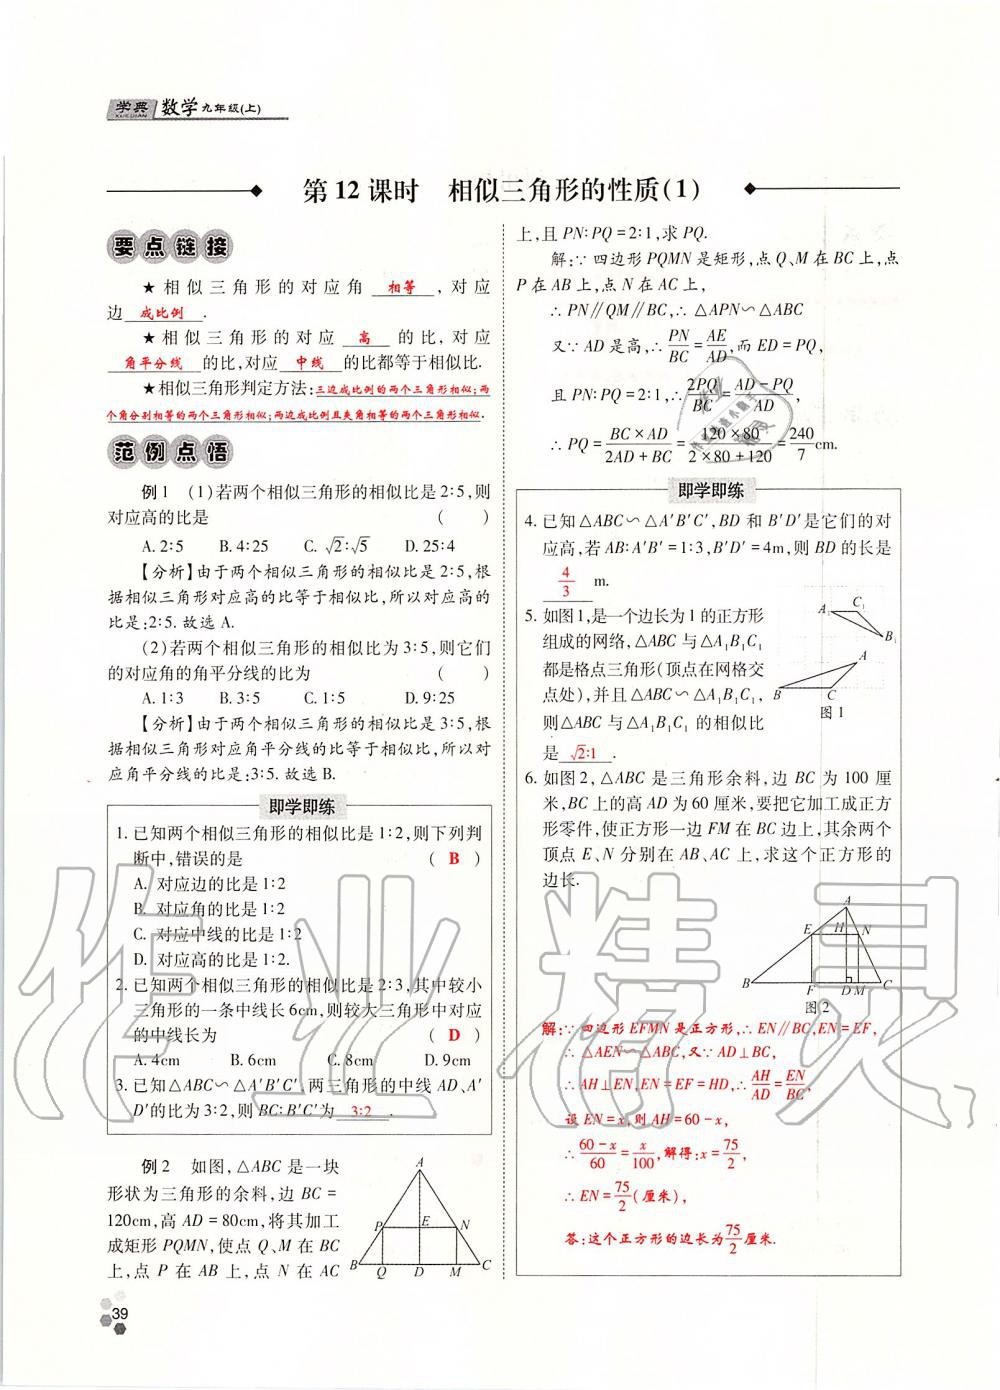 学典 数学 九年级(上)
XUEDIAN
第12课时 相似三角形的性质(1)
要点链接
★相似三角形的对应角 相等 ,对应
边 成比例 .
★相似三角形的对应 高 的比,对应
角平分线 的比,对应 中线 的比都等于相似比.
★相似三角形判定方法:三边成比例的两个三角形相似;两
个角分别相等的两个三角形相似;两边成比例且夹角相等的两个三角形相似.
范例点悟
例1 (1)若两个相似三角形的相似比是2∶5,则
对应高的比是 ( )
A. 2∶5 B. 4∶25 C. √2∶√5 D. 25∶4
【分析】由于两个相似三角形的相似比是2∶5,根
据相似三角形对应高的比等于相似比,所以对应高的
比是:2∶5. 故选A.
(2)若两个相似三角形的相似比为3∶5,则它们
的对应角的角平分线的比为 ( )
A. 1∶3 B. 3∶5 C. 1∶5 D. 9∶25
【分析】由于两个相似三角形的相似比是3∶5,根
据相似三角形对应角平分线的比等于相似比,所以对
应角平分线的比是:3∶5. 故选B.
即学即练
1. 已知两个相似三角形的相似比是1∶2,则下列判
断中,错误的是 ( B )
A. 对应边的比是1∶2
B. 对应角的比是1∶2
C. 对应中线的比是1∶2
D. 对应高的比是1∶2.
2. 已知两个相似三角形的相似比是2∶3,其中较小
三角形的一条中线长6cm,则较大三角形中对应
的中线长为 ( D )
A. 4cm B. 6cm C. 8cm D. 9cm
3. 已知△ABC∽△A′B′C′,两三角形的中线AD、A′
D′的比为3∶2,则BC∶B′C′为 3∶2 .
例2 如图,△ABC是一块
形状为三角形的余料,边BC=
120cm,高AD=80cm,将其加工
成矩形PQMN,使点Q、M在BC
上,点P在AB上,点N在AC
A
P E N
B Q D M C
上,且PN∶PQ=2∶1,求PQ.
解:∵四边形PQMN是矩形,点Q、M在BC上,点
P在AB上,点N在AC上,
∴PN∥QM∥BC,∴△APN∽△ABC
又∵AD是高,∴PN/BC=AE/AD,而ED=PQ,
且PN∶PQ=2∶1,∴2PQ/BC=AD-PQ/AD,
∴PQ=BC×AD/2AD+BC=120×80/2×80+120=240/7cm.
即学即练
4. 已知△ABC∽△A′B′C′,BD和B′D′是它们的对
应高,若AB∶A′B′=1∶3,B′D′=4m,则BD的长是
4/3 m.
5. 如图1,是一个边长为1的正方形
组成的网络,△ABC与△A₁B₁C₁
都是格点三角形(顶点在网格交
点处),并且△ABC∽△A₁B₁C₁,
则△ABC与△A₁B₁C₁的相似比
是 √2∶1 .
A₁ C₁
B₁
A
B C
图1
6. 如图2,△ABC是三角形余料,边BC为100厘
米,BC上的高AD为60厘米,要把它加工成正方
形零件,使正方形一边FM在BC边上,其余两个
顶点E、N分别在AB、AC上,求这个正方形的
边长.
A
E H N
B F D M C
图2
解:∵四边形EFMN是正方形,∴EN∥BC,EN=EF,
∴△AEN∽△ABC,又∵AD⊥BC,
∴AH⊥EN,EN=EF=HD,∴AH/AD=EN/BC,
设EN=x,则AH=60-x,
∴60-x/60=x/100,解得:x=75/2,
∴EN=75/2(厘米),
答:这个正方形的边长为75/2厘米.
39
作业精灵